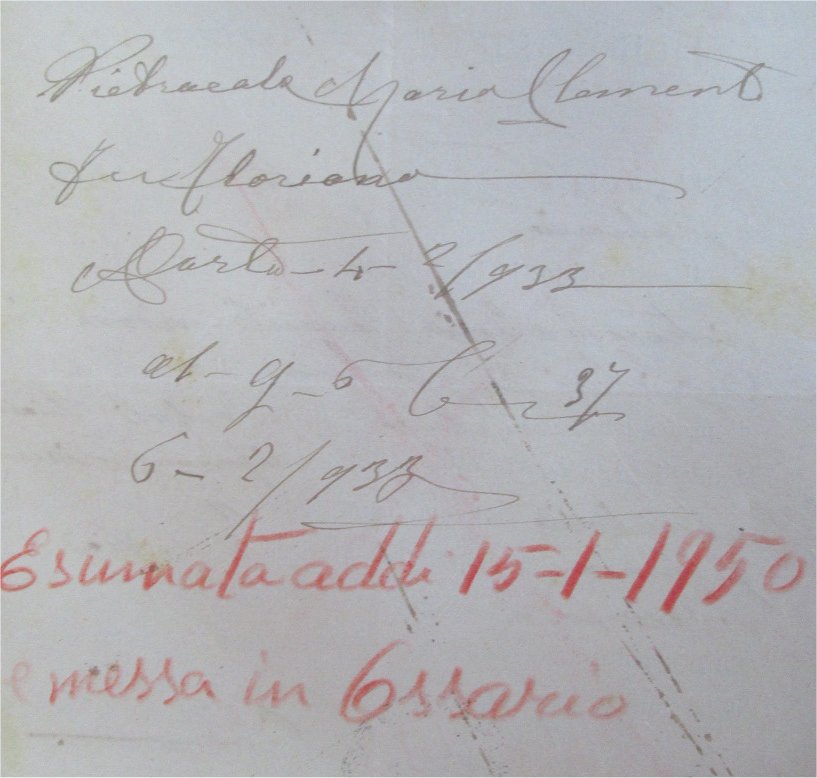 Pietracala Maria Clement
fu Floriano
Morta - 4 - 2/933
al - 9 - 6 C 37
6 - 2/933
Esumata addi 15-1-1950
e messa in Ossario